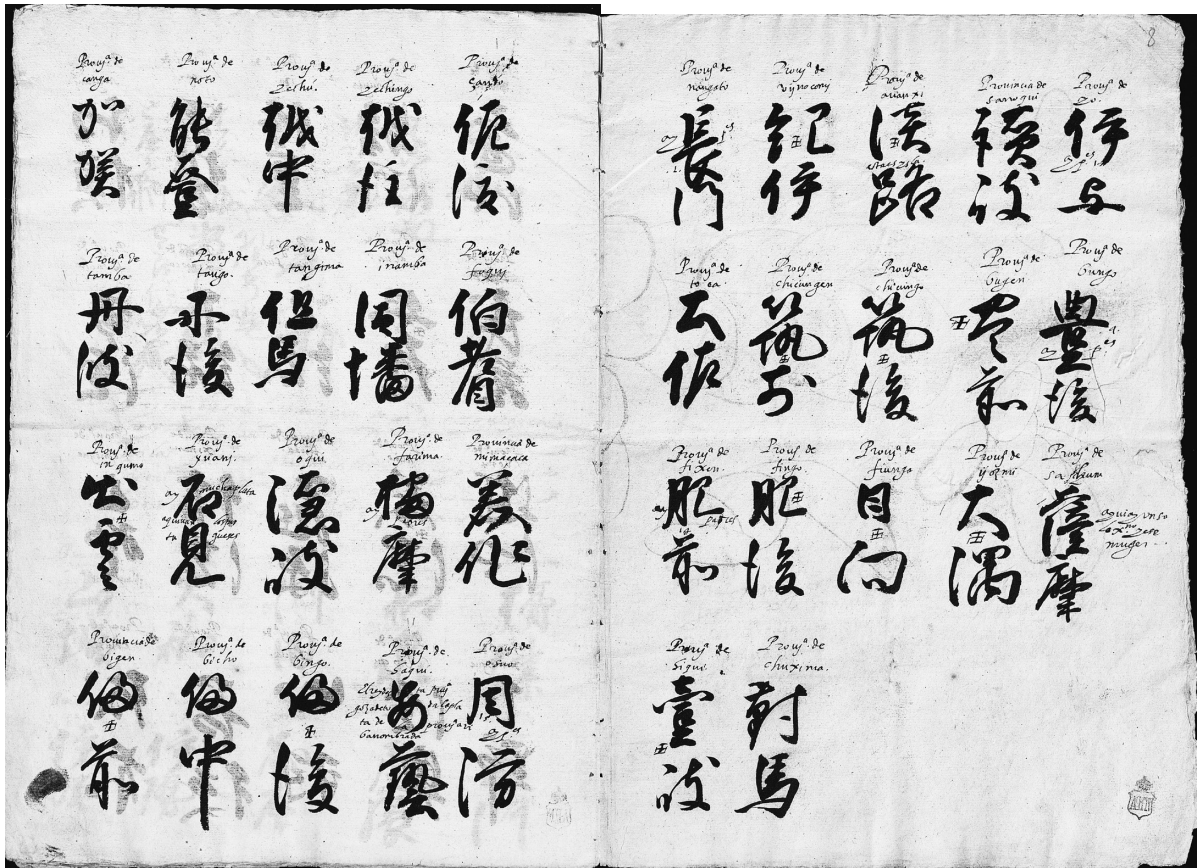 Prouª de
canga
加賀
Prouª de
noto
能登
Prouª de
Zechu.
越中
Prouª de
Zechingo
越後
Prouª de
sando
佐渡
Prouª de
tamba
丹波
Prouª de
tango.
丹後
Prouª de
tangima
但馬
Prouª de
inamba
因幡
Prouª de
伯耆
Prouª de
in gumo
出雲
Prouª de
yuami.
石見
Prouª de
oqui
隠岐
Prouª de
farima.
播摩
Prouincia de
mimaçaca
美作
Prouincia de
bigen.
備前
Prouª de
bicho
備中
Prouª de
bingo.
備後
Prouª de
aqui.
安藝
Prouª de
周防
8
Prouª de
nangato
長門
Prouª de
紀伊
Prouª de
auanxi
淡路
Prouincia de
sanoqui
讃岐
Prouª de
伊与
Prouª de
to ça.
土佐
Prouª de
chicungen
筑前
Prouª de
chicungo
筑後
Prouª de
bugen
豊前
Prouª de
bungo
豊後
Prouª de
fixen.
肥前
Prouª de
fingo.
肥後
Prouª de
fiungo
日向
Prouª de
大隅
Prouª de
薩摩
Prouª de
壹岐
Prouª de
chuxima.
對馬